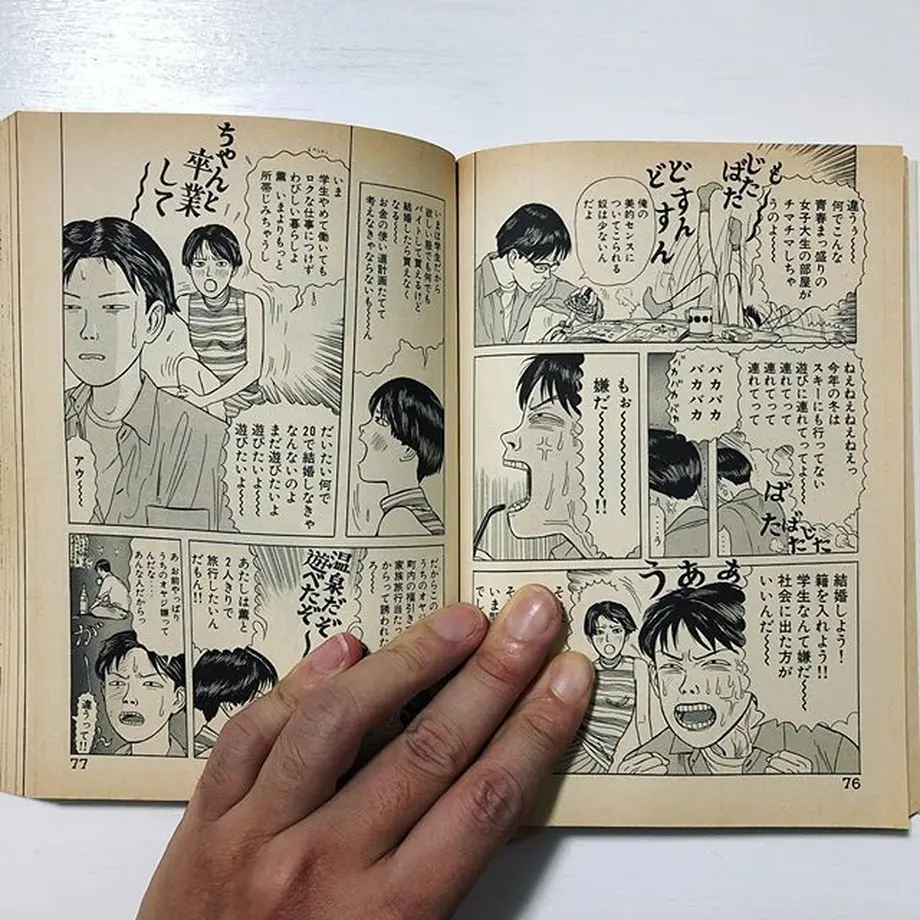 違うぅ〜〜〜
何でこんな
青春まっ盛りの
女子大生の部屋が
チマチマしちゃ
うのよ〜〜
も〜〜
じた
ばた
どすん
どすん
ど
俺の
美的センスに
ついてこられる
奴は少ないん
だよ
ねえねえねえねえっ
今年の冬は
スキーにも行ってない
遊びに連れてってよ〜〜
連れてって
連れてって
連れてって
バカバカ
バカバカ
じた
ばた
もぉ〜〜〜〜〜
嫌だ〜〜〜〜〜!!
結婚しよう!
籍を入れよう!!
学生なんて嫌だ〜〜
社会に出た方が
いいんだ〜〜
うぁぁ
76
いまは学生だから
欲しい服でも何でも
バイトして買えるけど
結婚したら買えなく
なる〜〜
お金の使い道計画たてて
考えなきゃならないも〜〜ん
いま
学生やめて働いても
ロクな仕事につけず
わびしい暮らしよ
薫 いまよりもっと
所帯じみちゃうし
ちゃんと
卒業
して
だいたい何で
20で結婚しなきゃ
なんないのよ
まだ遊びたいよ
遊びたいよ〜〜
遊びたいよ〜〜
アウ〜〜〜
温泉だぞ
遊べたぞ〜
あたしは薫と
2人きりで
旅行したいん
だもん!!
あ お前やっぱり
うちのオヤジ嫌って
んだな…
あんな人だからっ
が〜
違うって!!
77